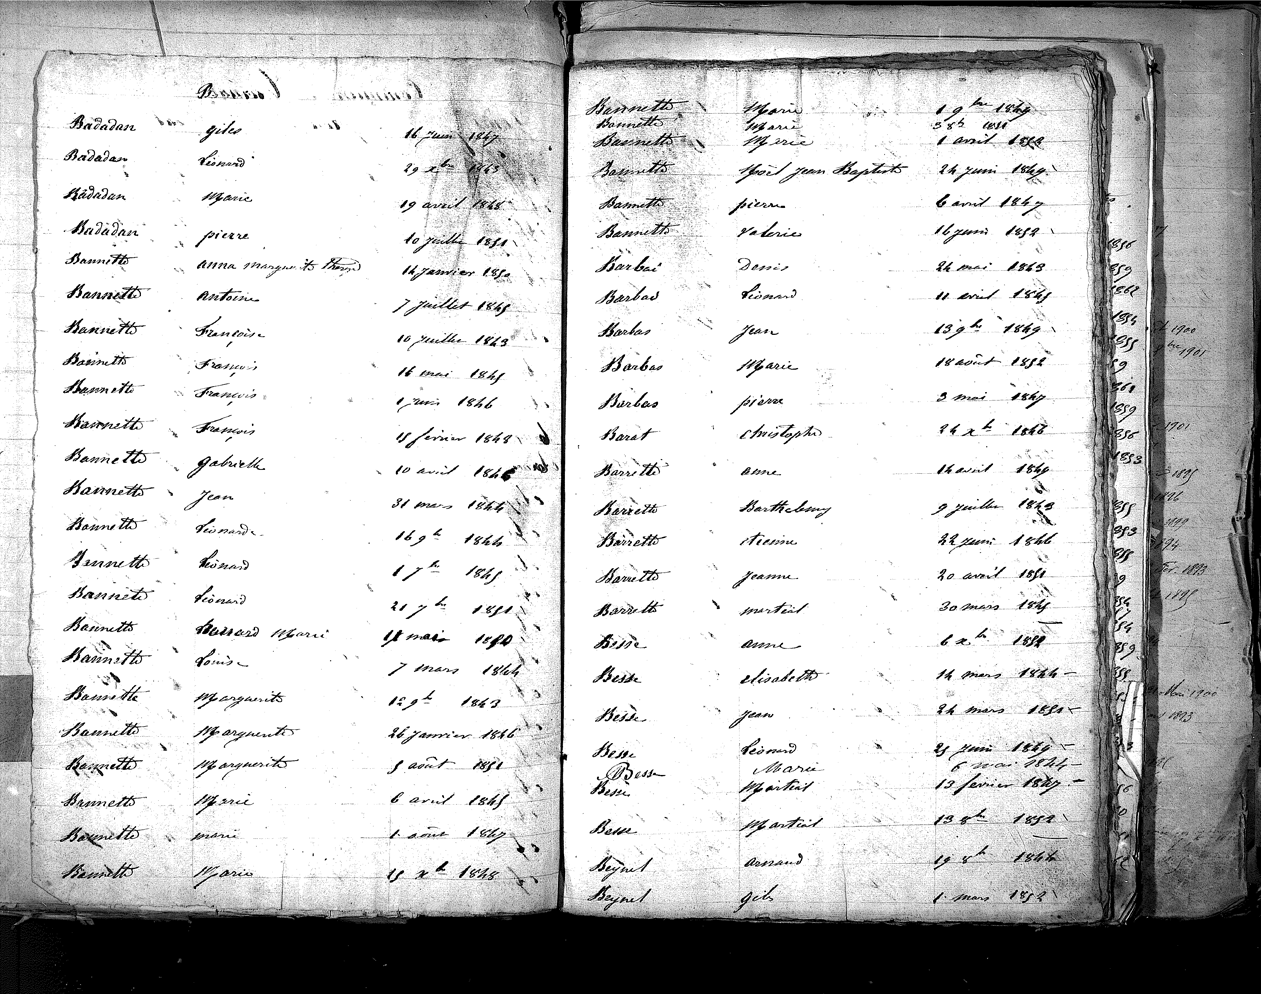 B
Badadan giles 16 juin 1847
Badadan Léonard 29 xbre 1843
Badadan Marie 19 avril 1848
Badadan pierre 10 juillet 1851
Bannette anna marguerite 14 janvier 1850
Bannette Antoine 7 juillet 1845
Bannette Françoise 10 juillet 1843
Bannette François 16 mai 1845
Bannette François 1 juin 1846
Bannette François 15 février 1842
Bannette gabrielle 10 avril 1846
Bannette Jean 31 mars 1844
Bannette Léonarde 16 9bre 1844
Bannette Léonard 1 7bre 1845
Bannette Léonard 21 7bre 1851
Bannette Marie mars
Bannette Louise 7 mars 1844
Bannette Marguerite 12 9bre 1843
Bannette Marguerite 26 janvier 1846
Bannette Marguerite 5 août 1851
Bannette Marie 6 avril 1845
Bannette marie 1 août 1847
Bannette Marie 15 xbre 1848
Bannette Marie 1 9bre 1849
Bannette Marie 3 8bre 1851
Bannette Marie 1 avril 1852
Bannette Noël Jean Baptiste 24 juin 1849
Bannette pierre 6 avril 1847
Bannette valerie 16 juin 1852
Barbas Denis 24 mai 1843
Barbas Léonard 11 avril 1845
Barbas Jean 13 9bre 1849
Barbas Marie 18 août 1852
Barbas pierre 3 mai 1847
Barat christophe 24 xbre 1846
Barrette anne 14 avril 1849
Barrette Barthelemy 9 juillet 1843
Barrette etienne 22 juin 1846
Barrette Jeanne 20 avril 1851
Barrette martial 30 mars 1845
Besse anne 6 xbre 1852
Besse elisabeth 14 mars 1844
Besse Jean 24 mars 1851
Besse Léonard 25 juin 1849
Besse Marie 6 mai 1844
Besse Martial 13 février 1847
Besse Martial 13 8bre 1852
Beynel arnaud 19 8bre 1844
Beynel gils 1 mars 1852